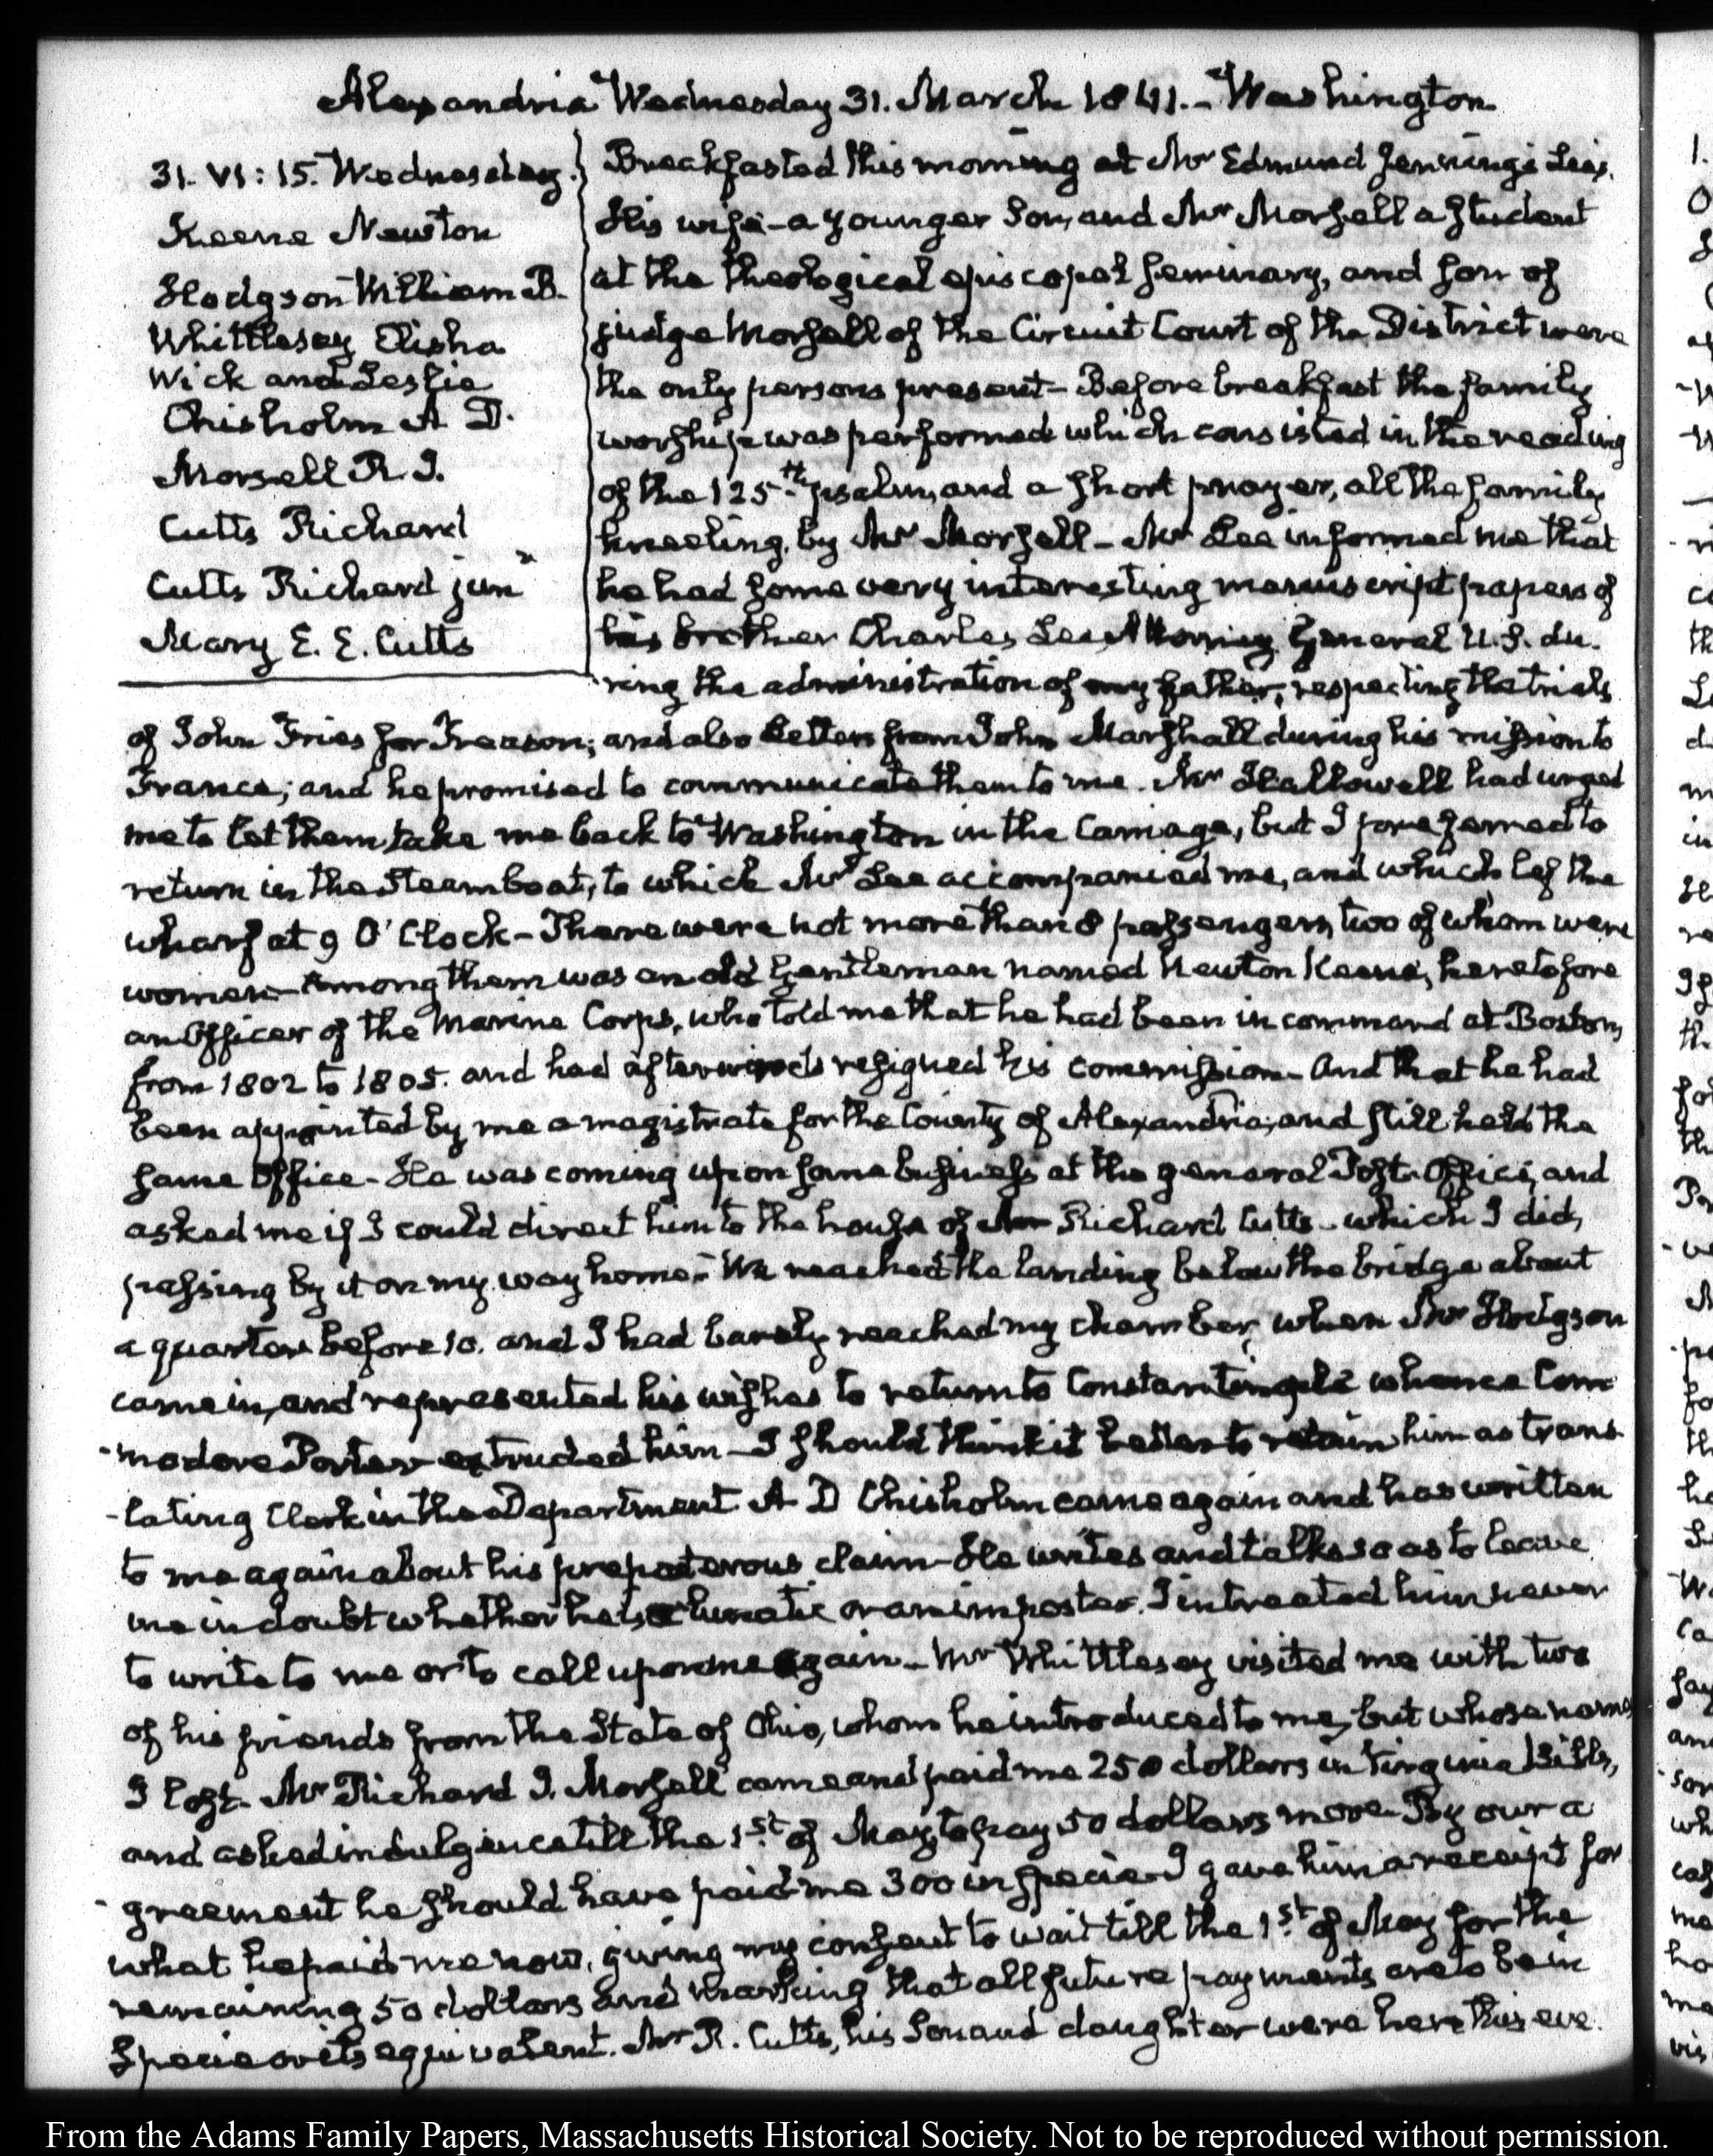 Alexandria Wednesday 31. March 1841.- Washington
31. VI: 15. Wednesday.
Keene Newton
Hodgson William B.
Whittlesey Elisha
Wick and Leslie
Chisholm A D.
Morsell R I.
Cutts Richard
Cutts Richard junr
Mary E. E. Cutts
Breakfasted this morning at Mr Edmund Jennings Lee's.
His wife - a younger Son, and Mr Morsell a Student
at the theological episcopal Seminary, and son of
judge Morsell of the Circuit Court of the District were
the only persons present - Before breakfast the family
worship was performed which consisted in the reading
of the 125th psalm, and a short prayer, all the family
kneeling, by Mr Morsell - Mr Lee informed me that
he had some very interesting manuscript papers of
his brother Charles Lee, Attorney General U.S. du-
ring the administration of my father, respecting the trials
of John Fries for Treason; and also Letters from John Marshall during his mission to
France; and he promised to communicate them to me. Mr Hallowell had urged
me to let them take me back to Washington in the Carriage, but I preferred to
return in the Steam boat, to which Mr Lee accompanied me, and which left the
wharf at 9 O'Clock - There were not more than 8 passengers, two of whom were
women - Among them was an old Gentleman named Newton Keene, heretofore
an Officer of the Marine Corps, who told me that he had been in command at Boston,
from 1802 to 1805. and had afterwards resigned his commission - And that he had
been appointed by me a magistrate for the County of Alexandria, and still held the
same Office - He was coming upon some business at the general Post-Office, and
asked me if I could direct him to the house of Mr Richard Cutts - which I did,
passing by it on my way home. - We reached the landing below the bridge about
a quarter before 10. and I had barely reached my chamber, when Mr Hodgson
came in, and represented his wishes to return to Constantinople whence Com-
-modore Porter extruded him - I should think it better to retain him as trans-
-lating Clerk in the Department A D Chisholm came again and has written
to me again about his preposterous claim - He writes and talks so as to leave
me in doubt whether he is a lunatic or an imposter. I intreated him never
to write to me or to call upon me again - Mr Whittlesey visited me with two
of his friends from the State of Ohio, whom he introduced to me, but whose names
I lost - Mr Richard I. Morsell came and paid me 250 dollars in Virginia Bills,
and asked indulgence till the 1st of May, to pay 50 dollars more - By our a
-greement he should have paid me 300 in specie - I gave him a receipt for
what he paid me now, giving my consent to wait till the 1st of May for the
remaining 50 dollars and marking that all future payments are to be in
Specie or its equivalent. Mr R. Cutts, his Son and daughter were here this eve.
From the Adams Family Papers, Massachusetts Historical Society. Not to be reproduced without permission.